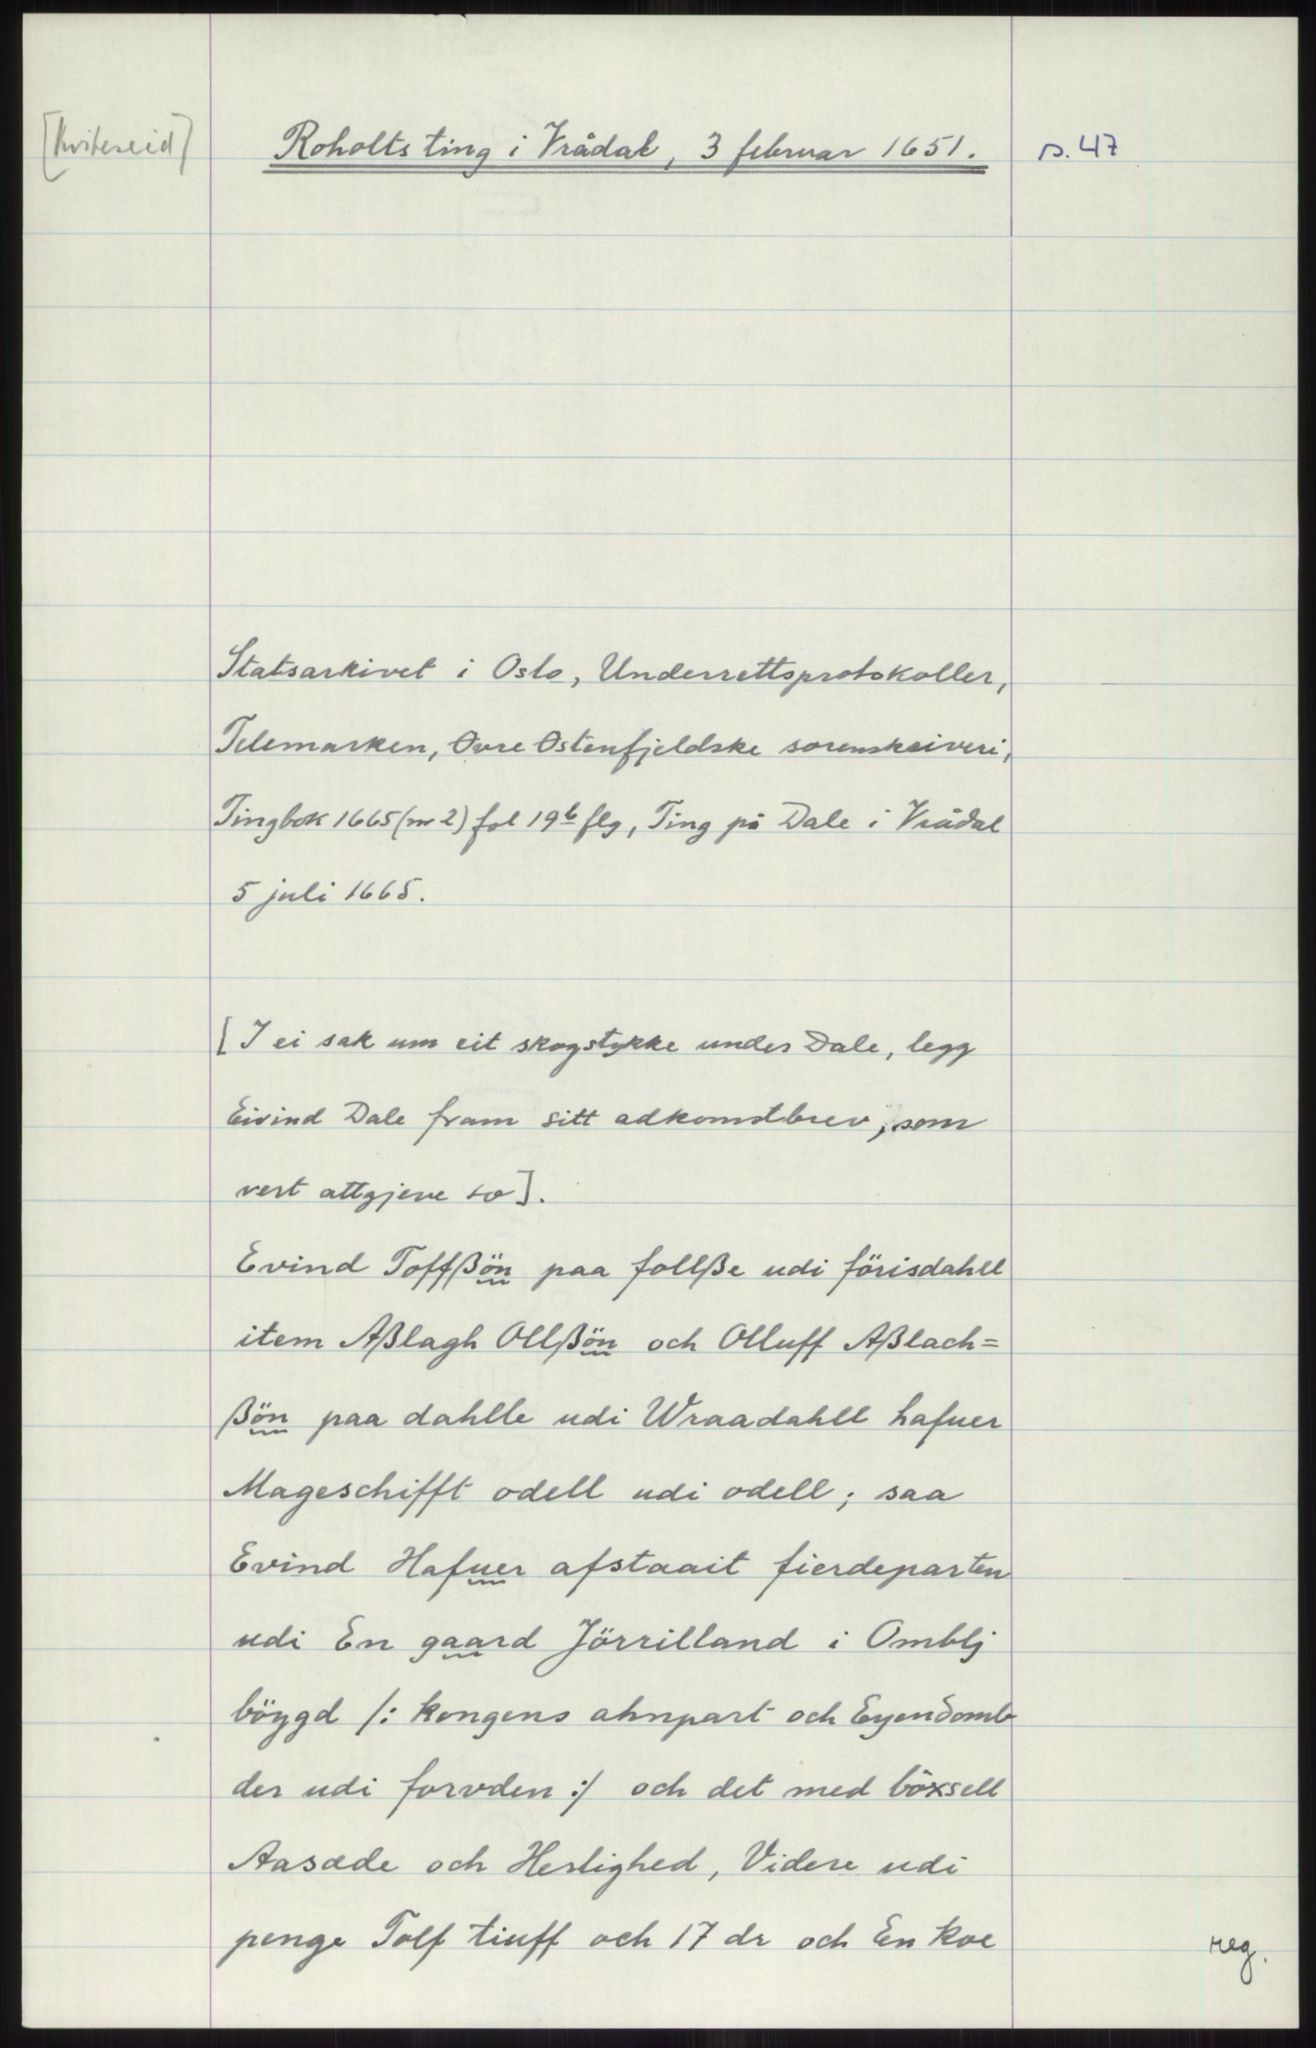 [Kviteseid]
Roholts ting i Vrådal, 3 februar 1651.
s. 47
Statsarkivet i Oslo, Underrettsprotokoller,
Telemarken, Øvre Østenfjeldske sorenskriveri,
Tingbok 1665 (nr 2) fol 19b flg, Ting på Dale i Vrådal
5 juli 1665.
[I ei sak um eit skogstykke under Dale, legg
Eivind Dale fram sitt adkomstbrev, som
vert attgjeve so].
Evind Toffßön paa follße udi förisdahll
item Aßlagh Ollßön och Olluff Aßlach=
ßön paa dahlle udi Wraadahll hafuer
Mageschifft odell udi odell; saa
Evind Hafuer afstaait fierdeparten
udi En gaard Jörrilland i Omblj
böygd /: kongens ahnpart och Eyendomb
der udi forvden :/ och det med böxsell
Aasæde och Herlighed, Videre udi
penge Tolf tiuff och 17 dr och En koe
reg.